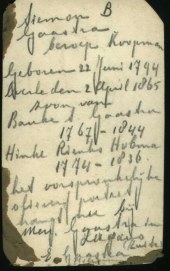 Siemon B
Gaastra
beroep Koopman
Geboren 22 Juni 1794
den 2 April 1865
zoon van
Bauke Gaastra
1767 - 1844
Hinke Rienks Hobma
1774 - 1836
het oorspronkelijke
portret
hangt bij
Gaastra
Gaastra